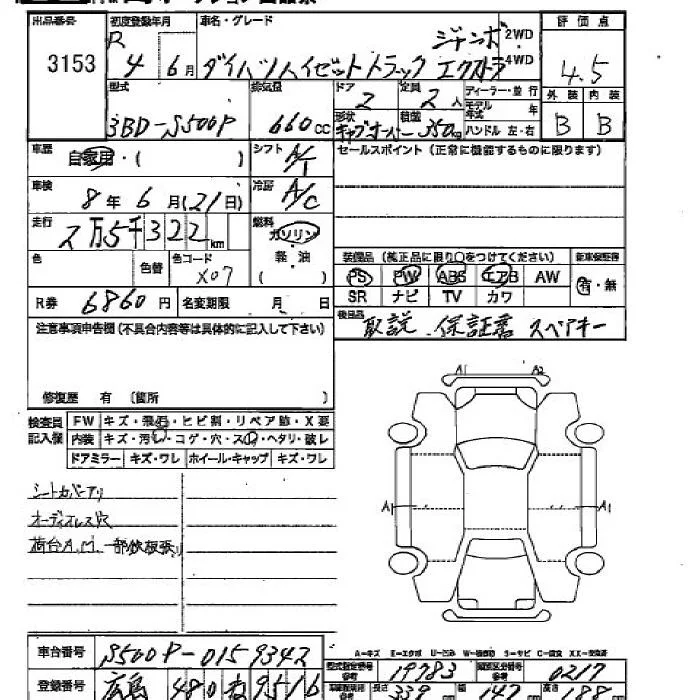 出品番号 初度登録年月 車名・グレード 評価点
3153 R4年6月 ダイハツハイゼットトラック ジャンボエクストラ 2WD 4WD 4.5
型式 排気量 ドア 定員 ディーラー・並行 外装 内装
3BD-S500P 660cc 2 2人 モデル年式 年 B B
形状 積載 ハンドル 左・右
350kg
車歴 自家用・( ) シフト A/T セールスポイント(正常に機能するものに限ります)
車検 8年6月(21日) 冷房 A/C
走行 2万5千322km 燃料 ガソリン
軽・油
( )
色 色替 色コード X07
装備品(純正品に限り○をつけてください) 新車保証書
PS PW ABS エアB AW 有・無
SR ナビ TV カワ
R券 6860円 名変期限 月 日
後日品 取説 保証書 スペアキー
注意事項申告欄(不具合内容等は具体的に記入して下さい)
修復歴 有(箇所 )
検査員記入欄 FW キズ・飛石・ヒビ割・リペア跡・X要
内装 キズ・汚レ・コゲ・穴・スレ・ヘタリ・破レ
ドアミラー キズ・ワレ ホイール・キャップ キズ・ワレ
A1 A2
A1 A1
シートカバーアリ
オーディオレス穴
荷台A.M.一部鉄板張り
A=キズ E=エクボ U=凹み W=補修跡 S=サビ C=腐食 XX=交換済
車台番号 S500P-0159342
型式指定番号 19783 類別区分番号 0217
登録番号 広島 480 9516
長さ 339 幅 147 高さ 188